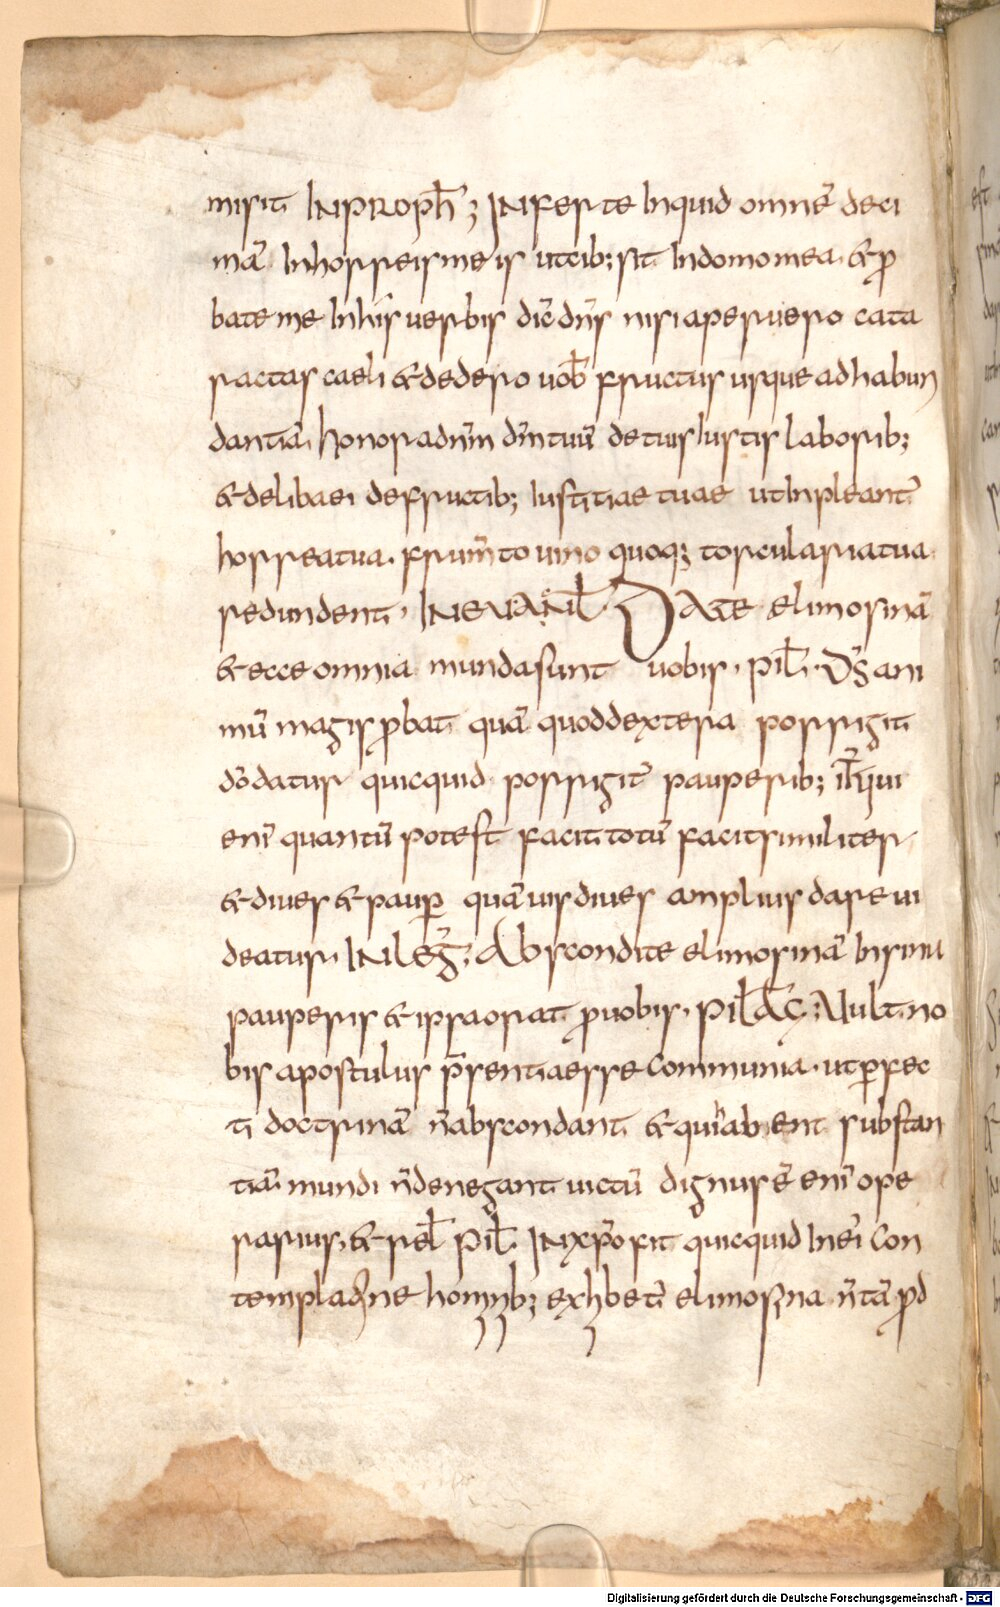 misit INPROPħ; INferte Inquid omnē deci
mā Inhorreis meis ut cib; sit Indomo mea & ꝓ
bate me In his uerbis dic̄ dn̄s nisi aperuero cata
ractas caeli & dedero uob̄ fructus usque ad habun
dantiā honora dn̄m dm̄ tuū de tuis Iustis laborib;
& delibaei de fructib; Iustitiae tuae ut Inpleant̄
horrea tua. frum̄to uino quoq; torcularia tua
redundent, INEUANḠL. Date elimosinā
& ecce omnia munda sunt uobis, PIL̄. Ds̄ ani
mū magis ꝓbat quā quod dextera porrigit
dō datur quicquid porrigit̄ pauperib; qui
enī quantū potest facit totū facit similiter
& diues & paup̄ quāuis diues amplius dare ui
deatur, INLEḠ; Abscondite elimosinā In sinu
pauperis & ipsa orat ꝓ uobis, PIL̄ Uult no
bis apostulus p̄sentia esse communia. ut ꝑfec
ti doctrinā n̄ abscondant & qui abent substan
tiā mundi n̄ denegant uictū dignus ē enī ope
rarius, & rel̄ PIL̄. IN xp̄o fit quicquid In ei con
templatione hominib; exhibet̄ elimosina n̄ tā ꝓd